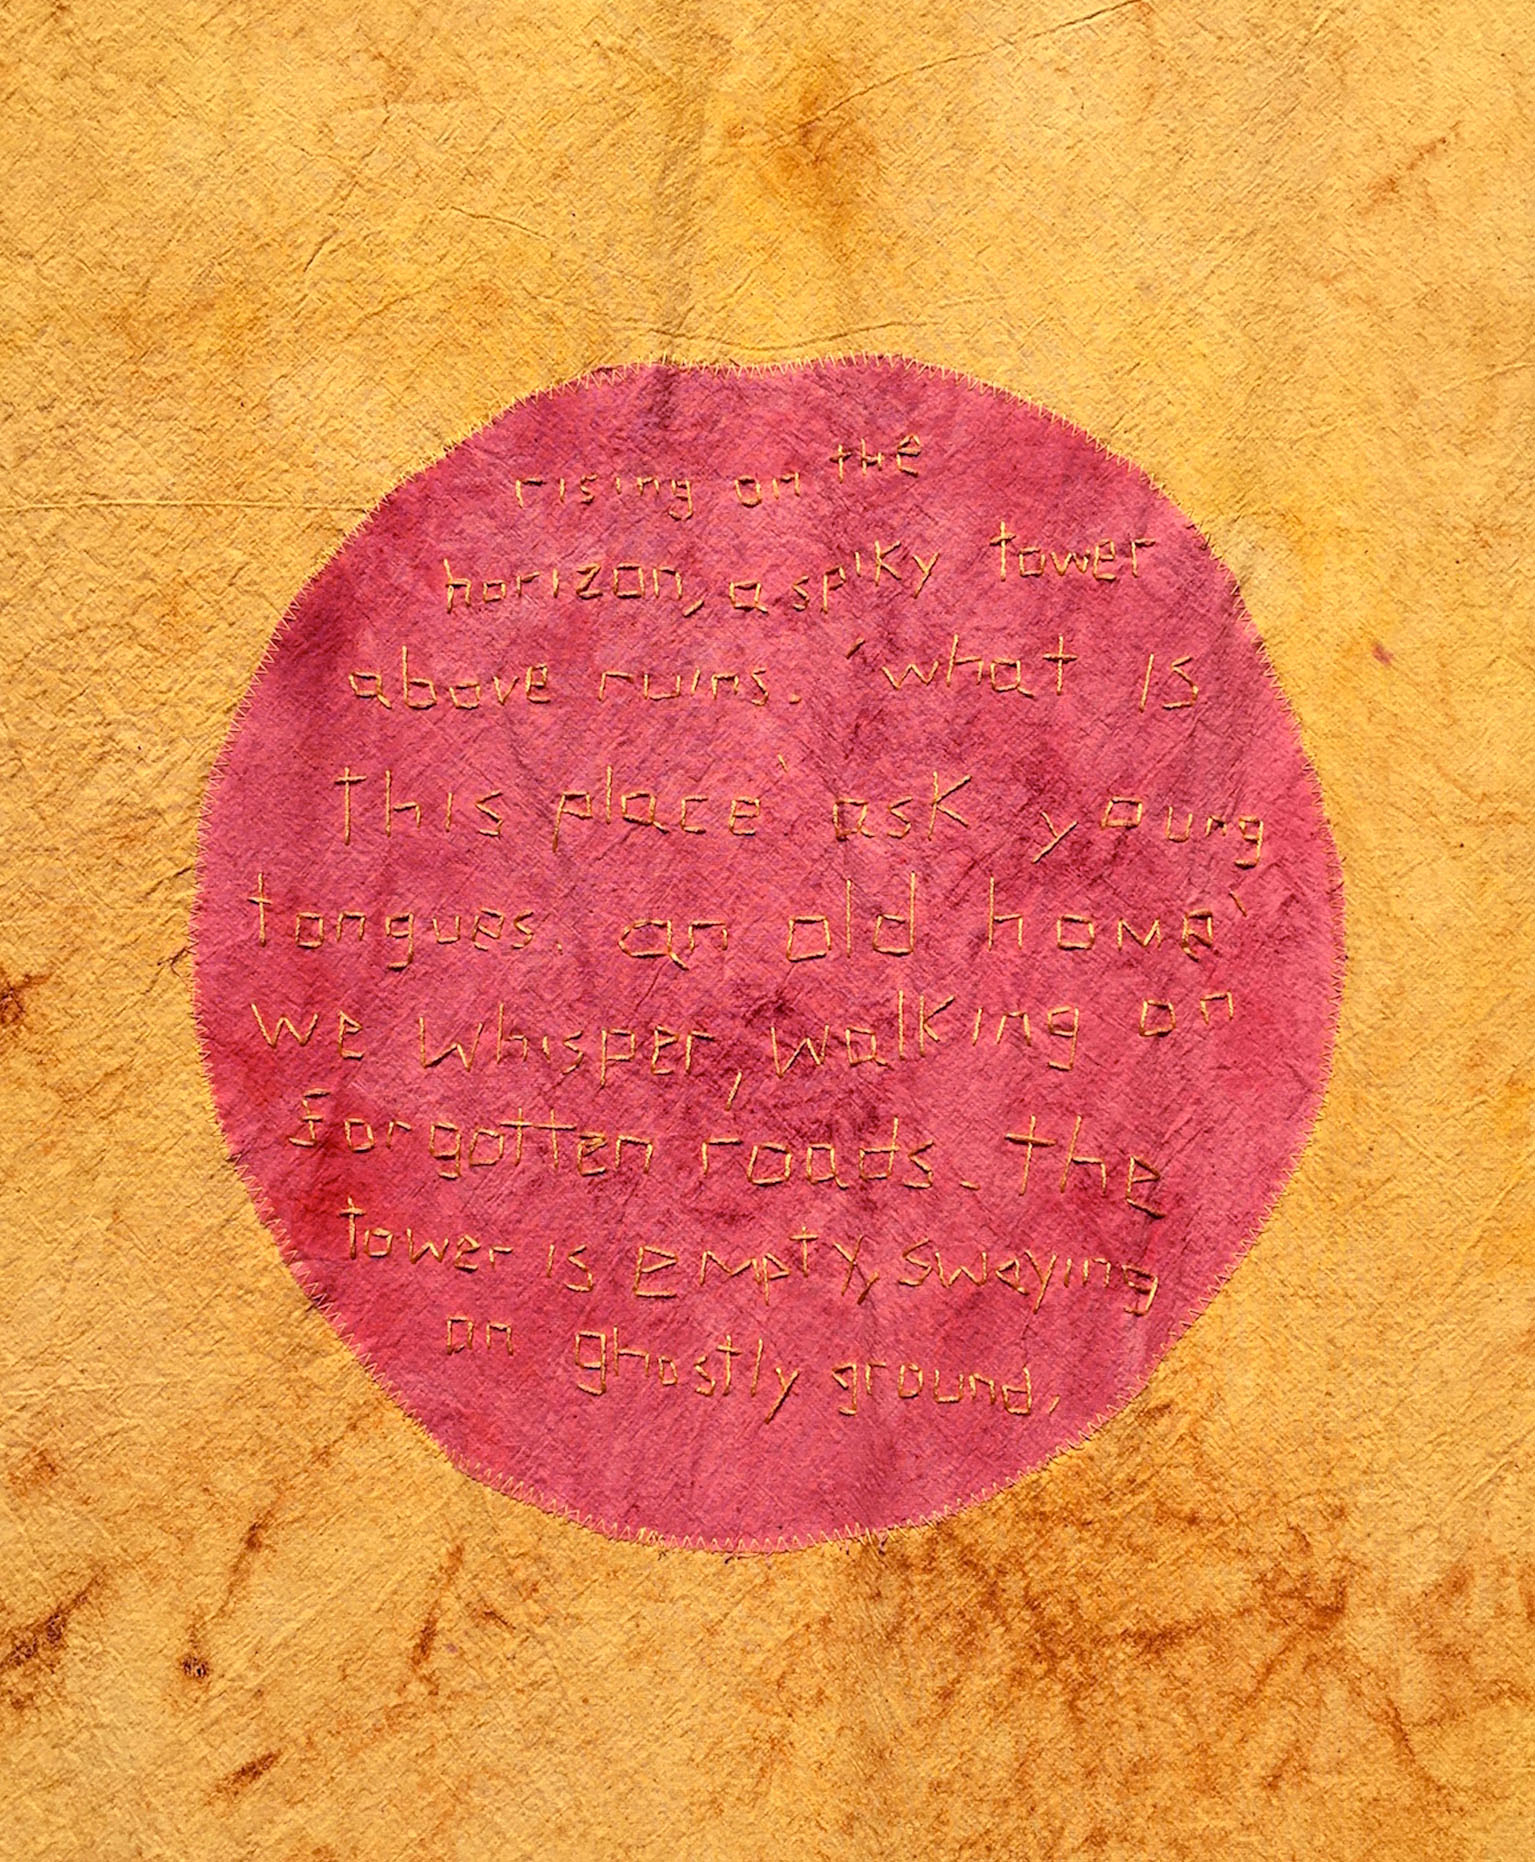 rising on the
horizon, a spiky tower
above ruins. 'what is
this place' ask young
tongues. an old home'
we whisper, walking on
forgotten roads. the
tower is empty, swaying
on ghostly ground,